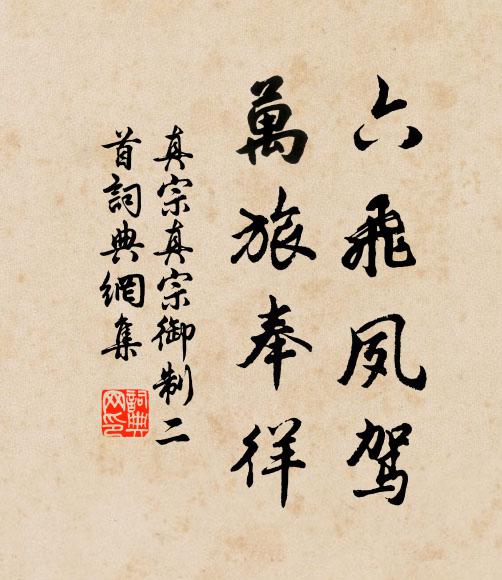 六飛夙駕
萬旅奉徉
真宗真宗御制二
首詞典網集
詞典
网印